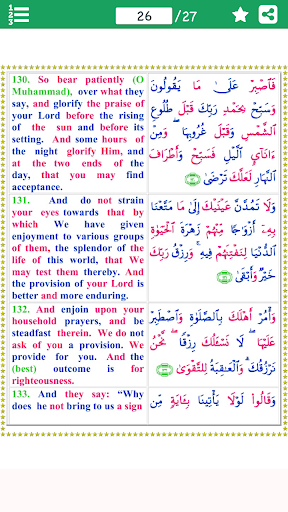 1 2 3
26 /27
130. So bear patiently (O
Muhammad), over what they
say, and glorify the praise of
your Lord before the rising
of the sun and before its
setting. And some hours of
the night glorify Him, and
at the two ends of the
day, that you may find
acceptance.
فَٱصْبِرْ عَلَىٰ مَا يَقُولُونَ
وَسَبِّحْ بِحَمْدِ رَبِّكَ قَبْلَ طُلُوعِ
ٱلشَّمْسِ وَقَبْلَ غُرُوبِهَا ۖ وَمِنْ
ءَانَآئِ ٱلَّيْلِ فَسَبِّحْ وَأَطْرَافَ
ٱلنَّهَارِ لَعَلَّكَ تَرْضَىٰ
131. And do not strain
your eyes towards that by
which We have given
enjoyment to various groups
of them, the splendor of the
life of this world, that We
may test them thereby. And
the provision of your Lord is
better and more enduring.
وَلَا تَمُدَّنَّ عَيْنَيْكَ إِلَىٰ مَا مَتَّعْنَا
بِهِۦٓ أَزْوَٰجًا مِّنْهُمْ زَهْرَةَ ٱلْحَيَوٰةِ
ٱلدُّنْيَا لِنَفْتِنَهُمْ فِيهِ ۚ وَرِزْقُ رَبِّكَ
خَيْرٌ وَأَبْقَىٰ
132. And enjoin upon your
household prayers, and be
steadfast therein. We do not
ask of you a provision. We
provide for you. And the
(best) outcome is for
righteousness.
وَأْمُرْ أَهْلَكَ بِٱلصَّلَوٰةِ وَٱصْطَبِرْ
عَلَيْهَا ۖ لَا نَسْـَٔلُكَ رِزْقًا ۖ نَّحْنُ
نَرْزُقُكَ ۗ وَٱلْعَـٰقِبَةُ لِلتَّقْوَىٰ
133. And they say: “Why
does he not bring to us a sign
وَقَالُوا۟ لَوْلَا يَأْتِينَا بِـَٔايَةٍ مِّن